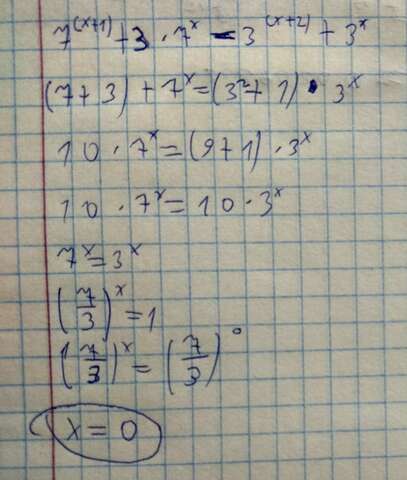 7^(x+1) + 3 · 7^x = 3^(x+2) + 3^x
(7+3) + 7^x = (3²+1) · 3^x
10 · 7^x = (9+1) · 3^x
10 · 7^x = 10 · 3^x
7^x = 3^x
(7/3)^x = 1
(7/3)^x = (7/3)^0
x = 0